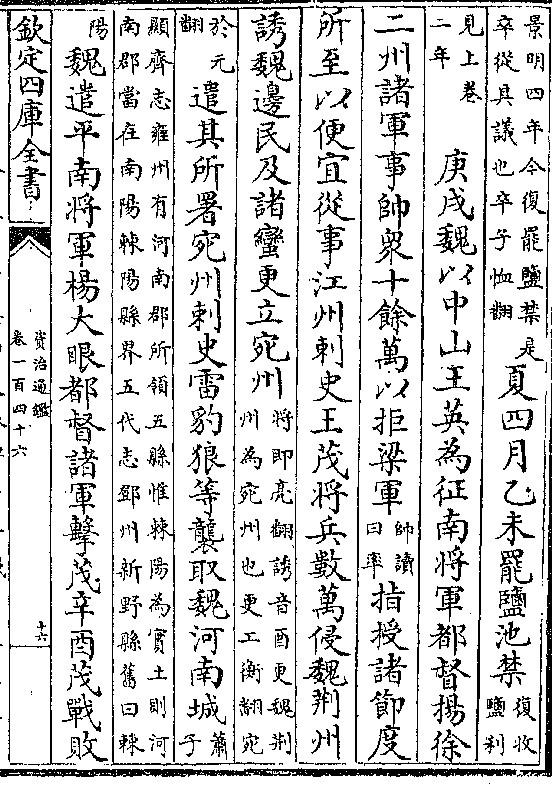 景明四年今復罷鹽禁是
卒從其議也卒子恤翻
夏四月乙未罷鹽池禁
復收
鹽利
見上卷
二年
庚戌魏以中山王英為征南將軍都督揚徐
二州諸軍事帥衆十餘萬以拒梁軍
帥讀
曰率
指授諸節度
所至以便宜從事江州刺史王茂將兵數萬侵魏荆州
誘魏邊民及諸蠻更立宛州
將即亮翻誘音酉更魏荆
州為宛州也更工衡翻宛
於元
翻
遣其所署宛州刺史雷豹狼等襲取魏河南城
蕭
子
顯齊志雍州有河南郡所領五縣惟棘陽為實土則河
南郡當在南陽棘陽縣界五代志鄧州新野縣舊曰棘
陽
魏遣平南將軍楊大眼都督諸軍擊茂辛酉茂戰敗
欽定四庫全書
資治通鑑
卷一百四十六
十六